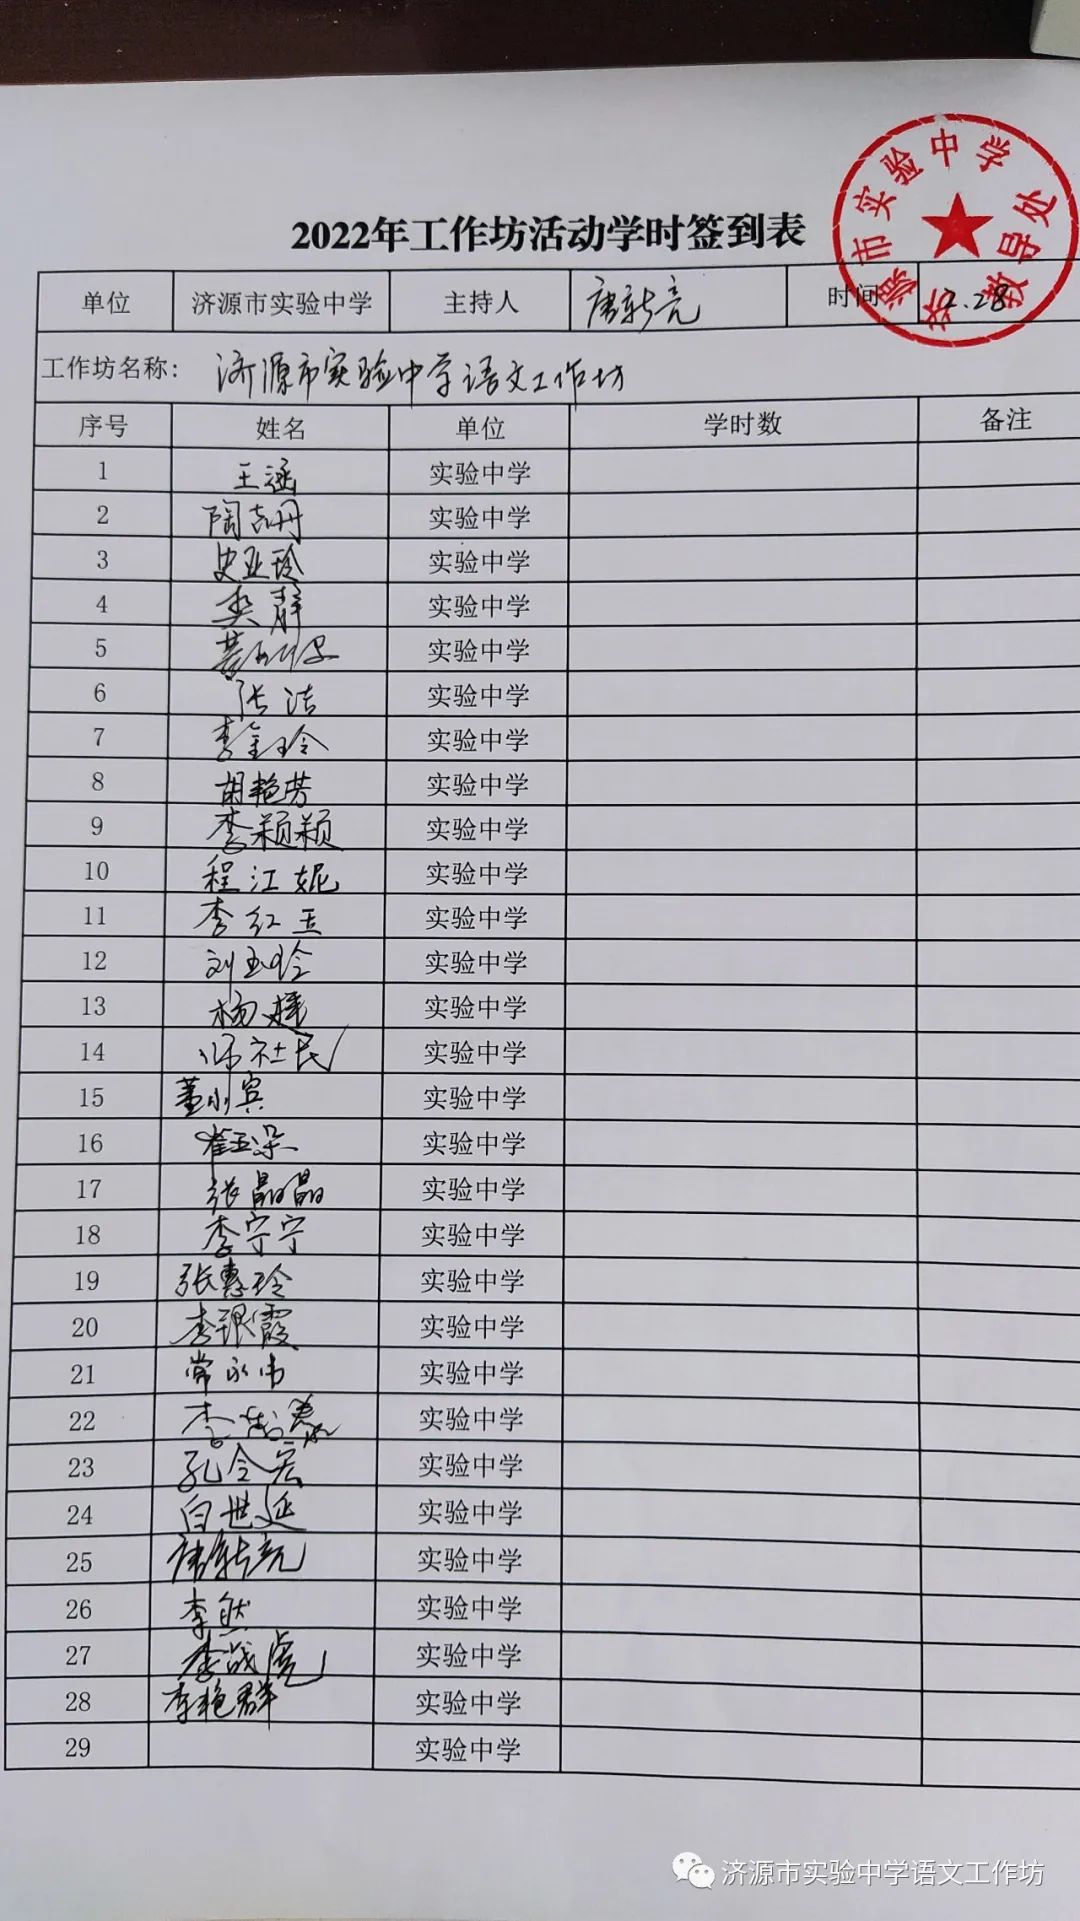 济源市实验中学教导处
2022年工作坊活动学时签到表
单位 济源市实验中学 主持人 唐新亮 时间 2.28
工作坊名称: 济源市实验中学语文工作坊
序号 姓名 单位 学时数 备注
1 王涵 实验中学
2 陶志丹 实验中学
3 史亚玲 实验中学
4 樊静 实验中学
5 实验中学
6 张洁 实验中学
7 李金玲 实验中学
8 胡艳芳 实验中学
9 李颖颖 实验中学
10 程江妮 实验中学
11 李红玉 实验中学
12 刘玉玲 实验中学
13 杨婕 实验中学
14 师社民 实验中学
15 董刚宾 实验中学
16 崔玉朵 实验中学
17 张晶晶 实验中学
18 李宁宁 实验中学
19 张惠玲 实验中学
20 李银霞 实验中学
21 常永韦 实验中学
22 李 实验中学
23 孔令宏 实验中学
24 白世延 实验中学
25 唐新亮 实验中学
26 李然 实验中学
27 李战虎 实验中学
28 李艳群 实验中学
29 实验中学
济源市实验中学语文工作坊